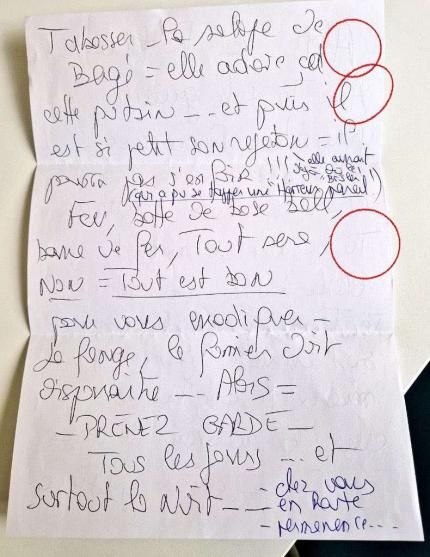 Tabasser la salope de
Bagé = elle adore ça
cette putain --- et puis il
est si petit son rejeton = il
pourra pas s'enfuir !!!
elle aurait
déjà dû le
(qui a pu se taper une horreur pareil !)
Feu, batte de base ball,
barre de fer, Tout sera,
Non = Tout est bon
pour vous éradiquer -
La fange, le fumier doit
disparaitre --- Alors =
- PRENEZ GARDE -
Tous les jours --- et
surtout la Nuit --
- chez vous
- en Route
- permanence ---